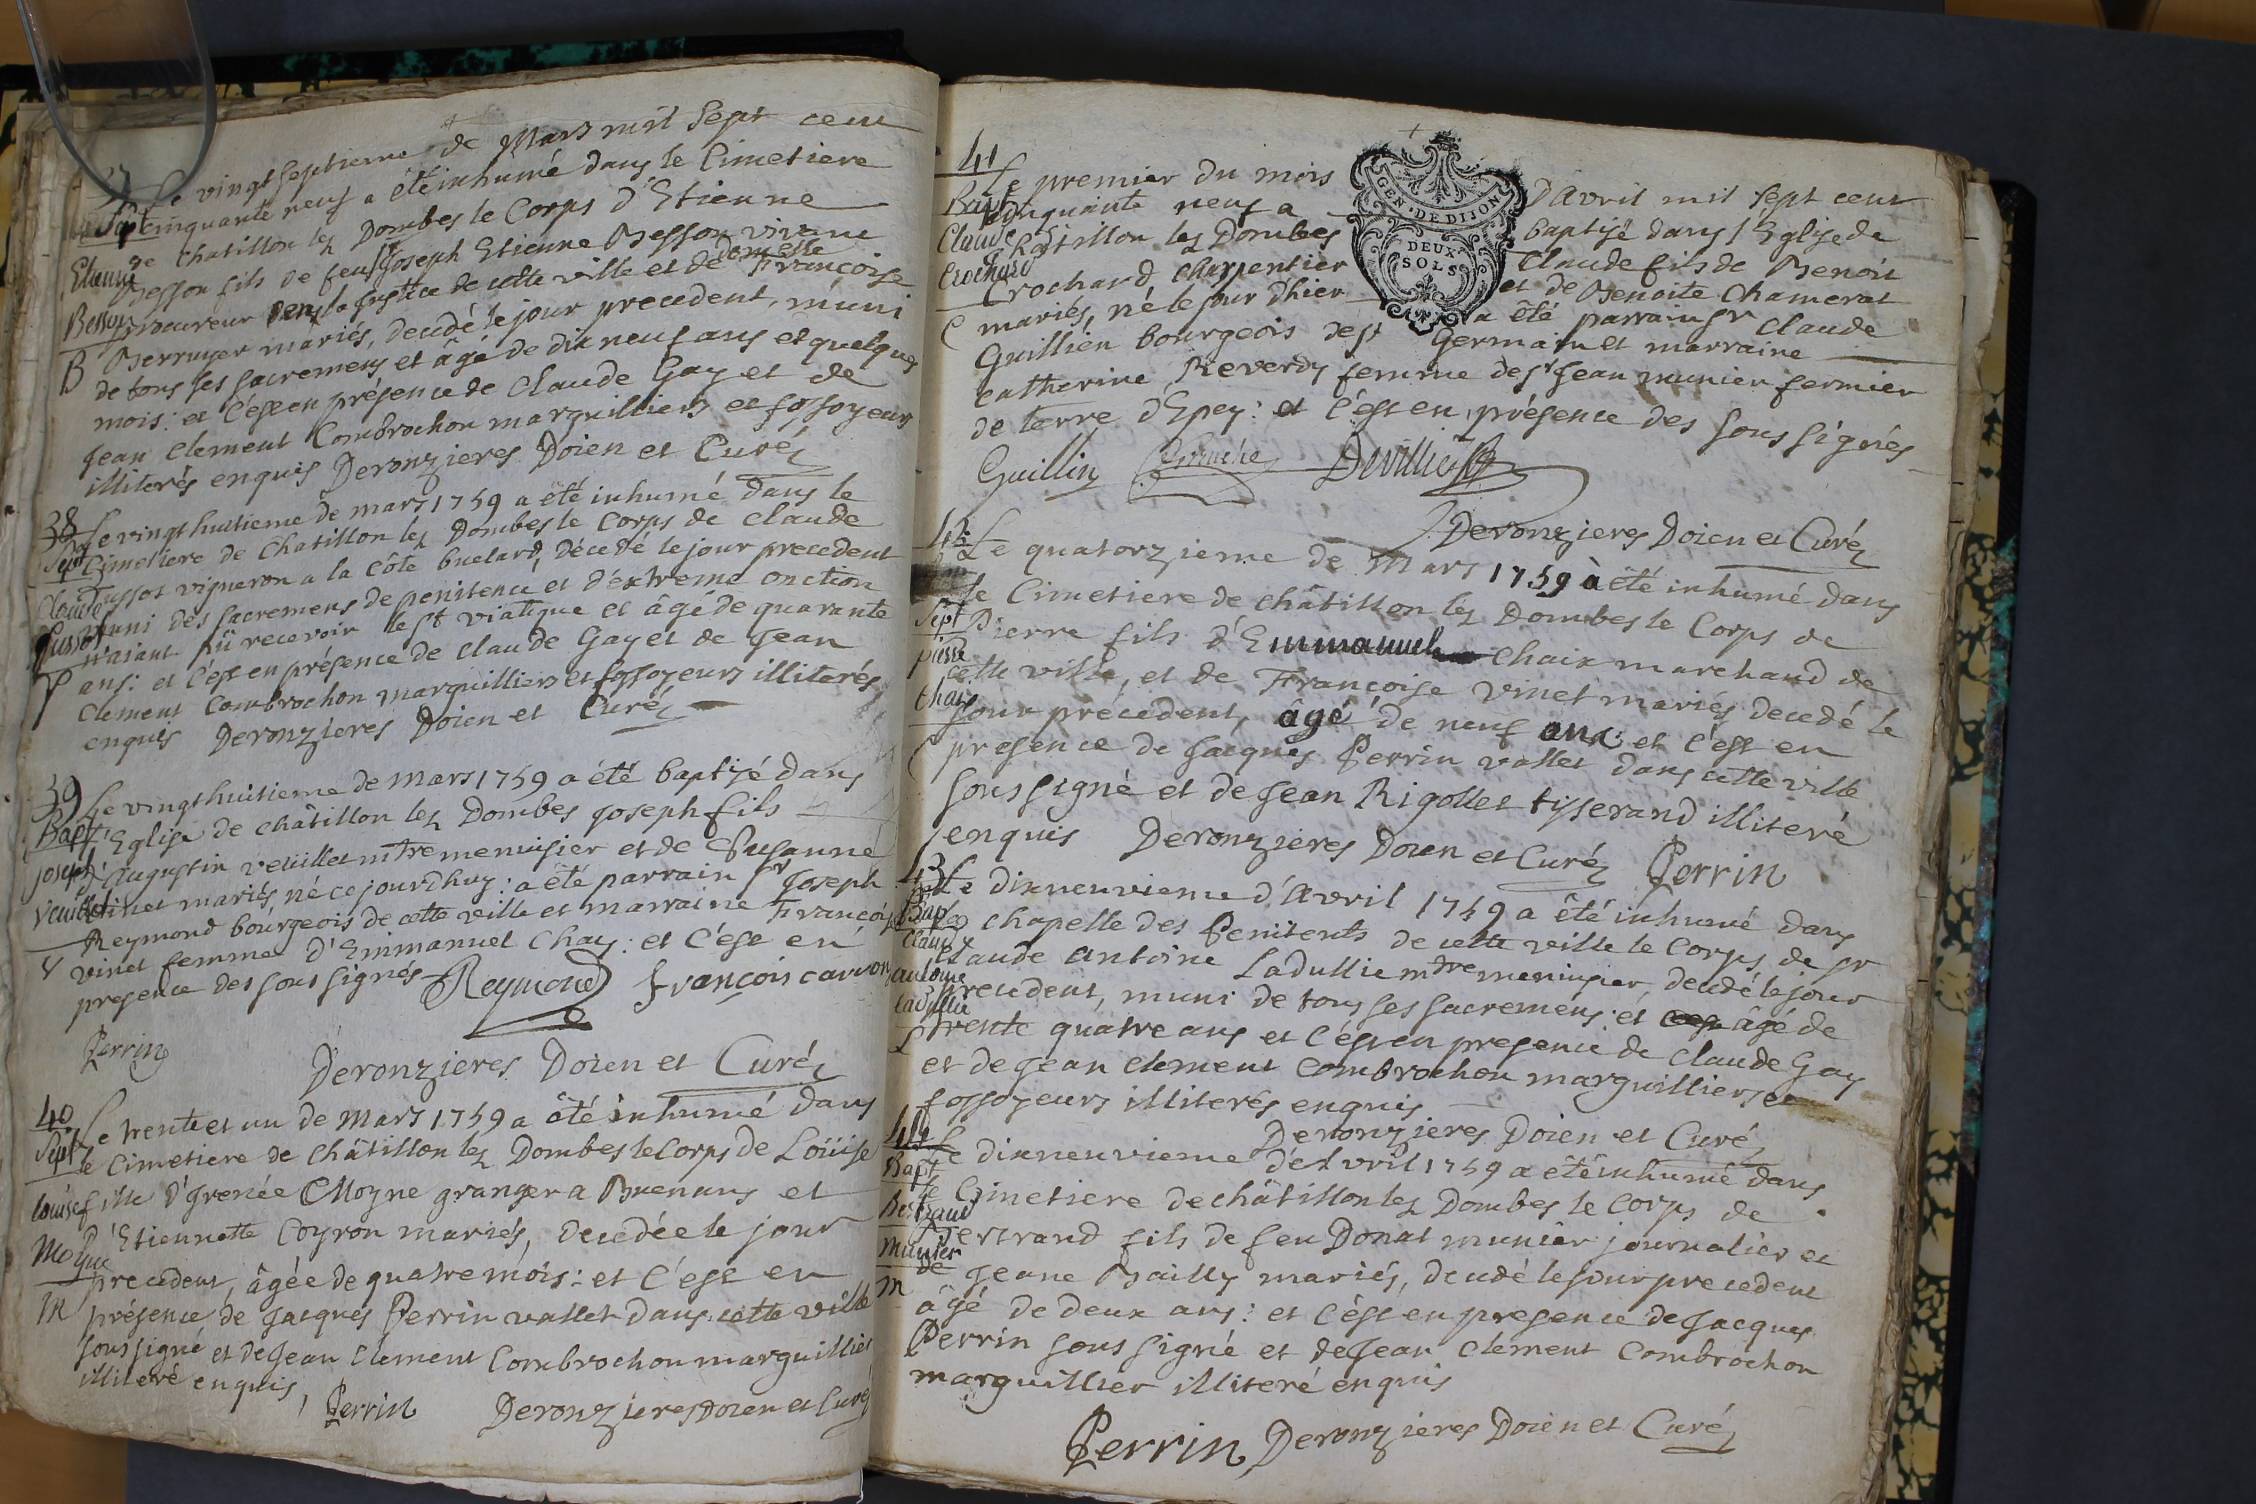 37 Le vingt septieme de Mars mil Sept cent
Sept cinquante neuf a été inhumé dans le Cimetiere
de Chatillon lez Dombes le Corps d'Etienne
Etienne Besson fils de feu Sr Joseph Etienne Besson vivant
Besson procureur dens la Justice de cette ville et de demelle Françoise
B Berruyer mariés, decedé le jour precedent, muni
de tous ses sacremens et âgé de dix neuf ans et quelques
mois: et c'est en présence de Claude Gay et de
Jean Clement Combrochon marguilliers et fossoyeurs
illiterés enquis Deronzieres Doien et Curé
38 Le vingt huitieme de mars 1759 a été inhumé dans le
Sept Cimetiere de Chatillon lez Dombes le Corps de Claude
Claude Jussot vigneron a la Côte buelard, décedé le jour precedent
Jussot muni des sacremens de penitence et d'extreme onction
n'aiant pû recevoir le st viatique et âgé de quarante
ans: et c'est en présence de Claude Gay et de Jean
Clement Combrochon marguilliers et fossoyeurs illiterés
enquis Deronzieres Doien et Curé
39 Le vingt huitieme de mars 1759 a été baptizé dans
Bapt l'Eglise de châtillon lez Dombes Joseph fils
Joseph d'Augustin veüillet mtre menuisier et de Susanne
Veuillet vinet mariés, né ce jourdhuy: a été parrain sr Joseph
Reymond bourgeois de cette ville et marraine Françoise
V vinet femme d'Emmanuel Chay: et c'est en
presence des sous signés Reymond françois carron
Perrin
Deronzieres Doien et Curé
40 Le trente et un de mars 1759 a été inhumé dans
Sept le Cimetiere de Châtillon lez Dombes le Corps de Loüise
louise fille d'Irenée Moyne granger a Buenans et
Moyne d'Etiennette Coyron mariés, decedée le jour
precedent, âgée de quatre mois: et c'est en
M présence de Jacques Perrin vallet dans cette ville
sous signé et de Jean Clement Combrochon marguillier
illiteré enquis, Perrin Deronzieres Doien et Curé
41 Le premier du mois d'avril mil sept cent
Bapt cinquante neuf a baptizé dans l'Eglise de
Claude Châtillon lez Dombes Claude fils de Benoit
Crochard Crochard Charpentier et de Benoite Chamerat
C mariés, né le jour d'hier a été parrain sr Claude
Guillien bourgeois de st Germain et marraine
Catherine Reverdy femme de sr Jean munier fermier
de terre d'Epey: et c'est en présence des sous signés
GEN. DE DIJON
DEUX SOLS
Guillin Devilliers
Deronzieres Doien et Curé
42 Le quatorzieme de Mars 1759 à été inhumé dans
le Cimetiere de châtillon lez Dombes le Corps de
Sept Pierre fils d'Emmanuel Chaix marchand de
pierre cette ville, et de Françoise vinet mariés decedé le
Chaix jour precedent, âgé de neuf ans: et c'est en
C presence de Jacques Perrin vallet dans cette ville
sous signé et de Jean Rigollet tisserand illiteré
enquis Deronzieres Doien et Curé Perrin
43 Le dixneuvieme d'Avril 1759 a été inhumé dans
Bapt la chapelle des Penitents de cette ville le Corps de sr
Claude Claude Antoine Ladullie mtre menuisier, decedé le jour
antoine precedent, muni de tous ses sacremens: et âgé de
Ladullie trente quatre ans et c'est en presence de Claude Gay
L et de Jean Clement Combrochon marguilliers et
fossoyeurs illiterés enquis
Deronzieres Doien et Curé
44 Le dixneuvieme d'Avril 1759 a été inhumé dans
Bapt le Cimetiere de châtillon lez Dombes le Corps de
Bertrand Bertrand fils de feu Donat munier journalier et
Munier de Jeane Bailly mariés, decedé le jour precedent
M âgé de deux ans: et c'est en presence de Jacques
Perrin sous signé et de Jean Clément Combrochon
marguillier illiteré enquis
Perrin Deronzieres Doien et Curé